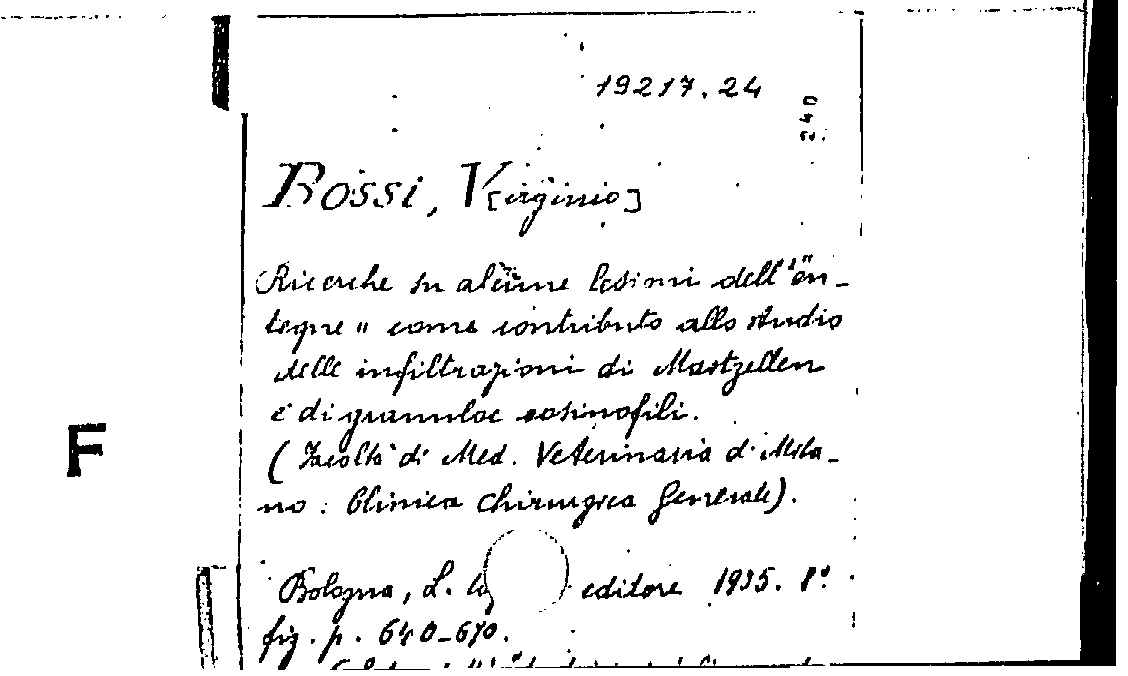 19217.24
240
Rossi, V[irginio]
Ricerche su alcune lesioni dell' "en-
tegue" come contributo allo studio
delle infiltrazioni di Mastzellen
e di granuloc eosinofili.
(Facoltà di Med. Veterinaria di Mila-
no: Clinica Chirurgica Generale).
F
Bologna, L. editore 1935. 8°.
fig. p. 640-670.